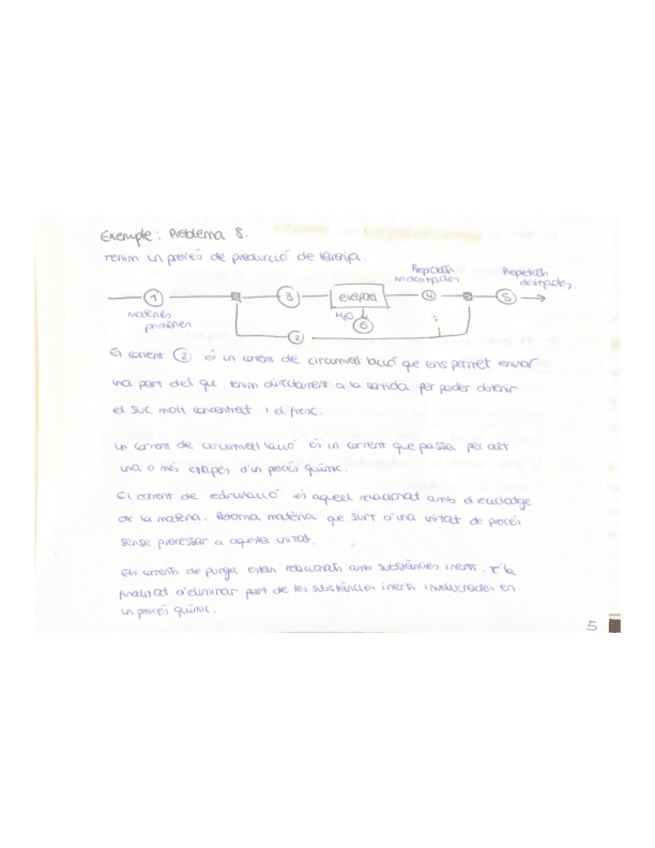 Exemple: Problema 8.
Tenim un procés de producció de taronja.
Propietats
no desitjades
Propietats
desitjades.
1
3
evapora
4
5
H2O
6
matèries
primeres
2
El corrent 2 és un corrent de circumval·lació que ens permet enviar
una part del que tenim directament a la sortida per poder obtenir
el suc molt concentrat i el fresc.
Un corrent de circumval·lació és un corrent que passa per alt
una o més etapes d'un procés químic.
El corrent de recirculació és aquell relacionat amb el reciclatge
de la matèria. Retorna matèria que surt d'una unitat de procés
sense processar a aquesta unitat.
Els corrents de purga estan relacionats amb substàncies inerts. Té la
finalitat d'eliminar part de les substàncies inerts involucrades en
un procés químic.
5